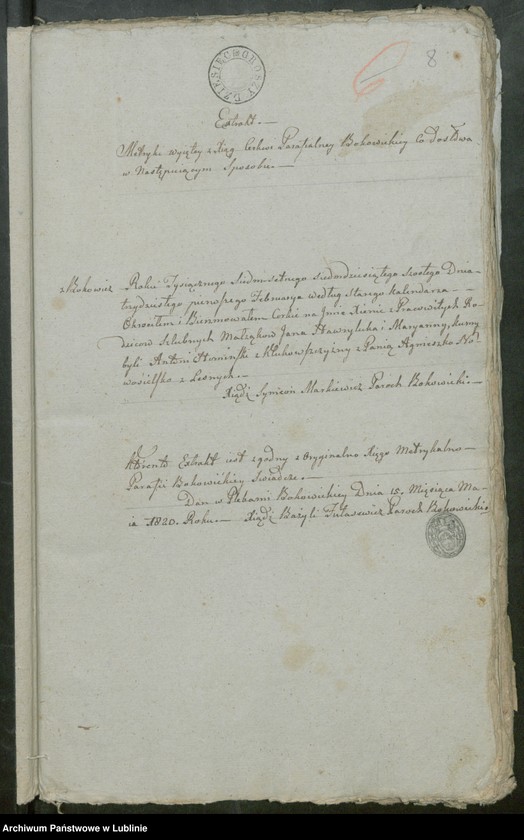 DZIESIĘĆ GROSZY
8
6
Extrakt.—
Metryki wyięty z Xiąg Cerkwi Parafialney Bohowickiey Co do Słowa
w Następuiącym Sposobie.—
z Bohowicz Roku Tysiącznego Siedmsetnego siedmdziesiątego Szostego Dnia
trzydziestego pierwszego Februarya według Starego Kalendarza —
Okrzciłem i Bierzmowałem Corkę na Imie Xenie z Pracowitych Ro
dziców Szlubnych Małżąkow Jana Hawryluka i Maryanny, kumy
byli Antoni Słominski z Kłukow przyżny z Panią Agnieszką
z Lesnych.—
Xiądz Symeon Markiewicz Paroch Bohowicki.—
Ktorento Extrakt iest zgodny z Oryginalną Xięgą Metrykalną—
Parafii Bohowickiey Swiadczę.—
Dan w Plebanii Bohowickiey Dnia 15. Miesiąca Ma
ia 1820. Roku.— Xiądz Bazyli Paroch Bohowicki
Archiwum Państwowe w Lublinie